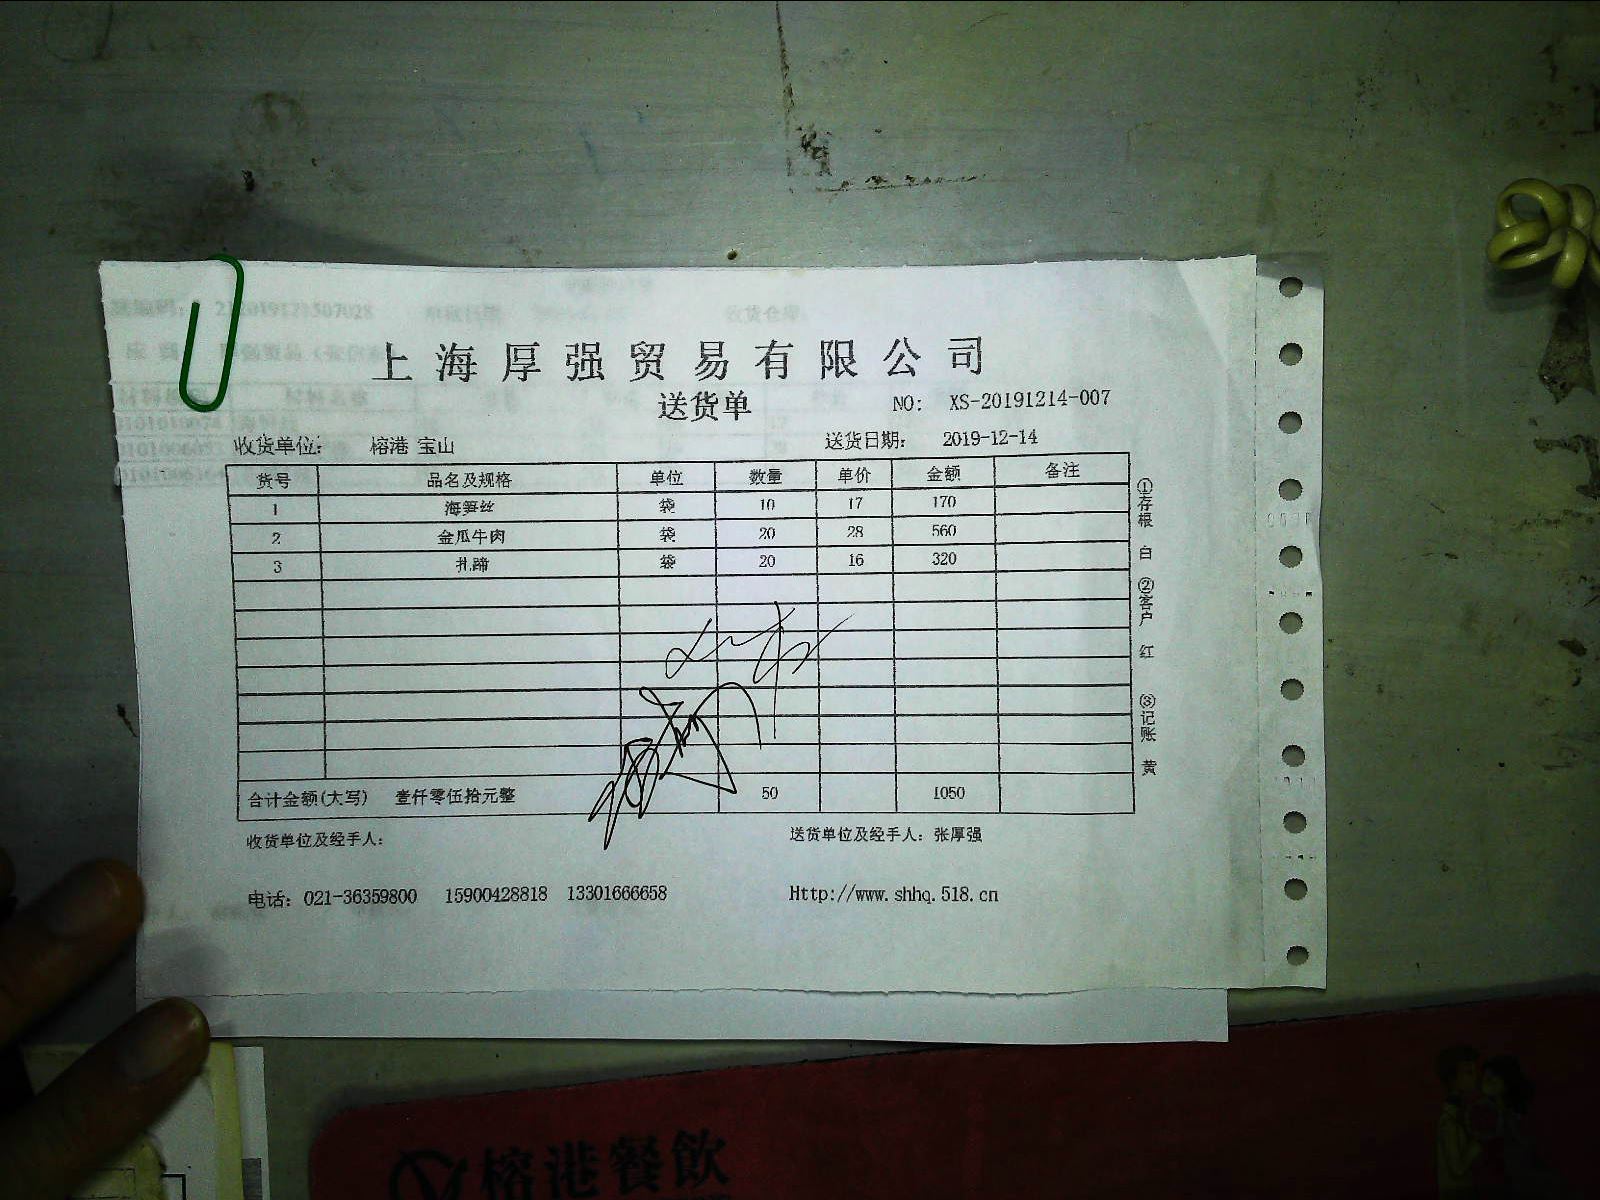 上海厚强贸易有限公司
送货单
NO: XS-20191214-007
收货单位: 榕港 宝山
送货日期: 2019-12-14
货号 品名及规格 单位 数量 单价 金额 备注
1 海笋丝 袋 10 17 170
2 金瓜牛肉 袋 20 28 560
3 扎蹄 袋 20 16 320
合计金额(大写) 壹仟零伍拾元整 50 1050
①存根 白 ②客户 红 ③记账 黄
收货单位及经手人:
送货单位及经手人: 张厚强
电话: 021-36359800 15900428818 13301666658
Http://www.shhq.518.cn
榕港餐飲